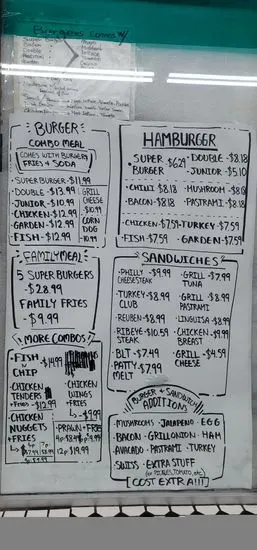 Burgers Comes w/
BURGER
COMBO MEAL
COMES WITH BURGER,
FRIES & SODA
· SUPER BURGER - $11.99
· DOUBLE - $13.99
· JUNIOR - $10.99
· CHICKEN - $12.99
· GARDEN - $12.99
· FISH - $12.99
GRILL
CHEESE
- $10.99
CORN
DOG
- 10.99
HAMBURGER
· SUPER BURGER $6.29
· DOUBLE - $8.18
· JUNIOR - $5.10
· CHILI $8.18
· MUSHROOM - $8.18
· BACON - $8.18
· PASTRAMI - $8.18
· CHICKEN - $7.59
· TURKEY - $7.59
· FISH - $7.59
· GARDEN - $7.59
FAMILY MEAL
5 SUPER BURGERS
- $28.99
FAMILY FRIES
- $9.99
SANDWICHES
· PHILLY - $9.99
CHEESESTEAK
· TURKEY - $8.99
CLUB
· REUBEN - $8.99
· RIBEYE - $10.59
STEAK
· BLT - $7.49
· PATTY - $7.99
MELT
· GRILL - $7.99
TUNA
· GRILL - $8.99
PASTRAMI
· LINGUISA - $8.99
· CHICKEN - $9.99
BREAST
· GRILL - $4.59
CHEESE
MORE COMBOS
· FISH N CHIP - $14.99
· CHICKEN
TENDERS
+ Fries - $12.99
· CHICKEN
NUGGETS
+ FRIES
· CHICKEN
WINGS
+ FRIES
- $9.99
· PRAWN + FRIES
12p $19.99
BURGER + SANDWICH
ADDITIONS
· MUSHROOMS · JALAPENO · EGG
· BACON · GRILL ONION · HAM
· AVACADO · PASTRAMI · TURKEY
· SWISS · EXTRA STUFF
(ex: PICKLES, TOMATO, etc.)
[COST EXTRA!!!]